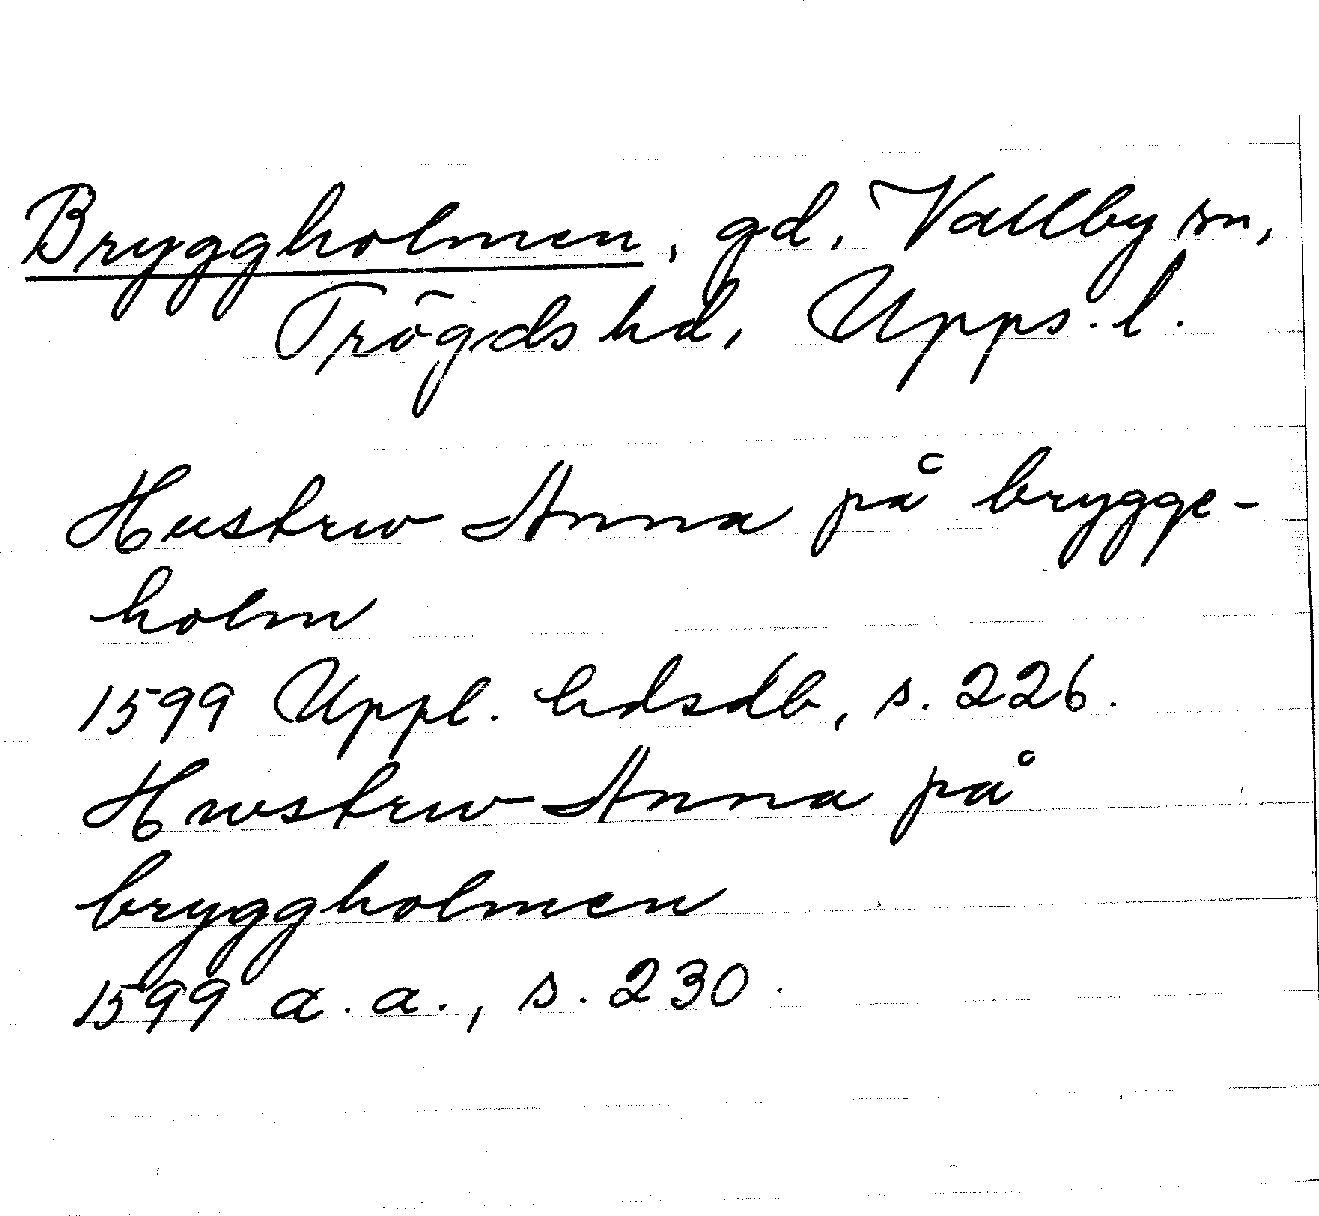 Bryggholmen, gd, Vallby sn,
Trögds hd, Upps. l.
Hustrw Anna på brygge-
holm
1599 Uppl. hdsdb, s. 226.
Hwstrw Anna på
bryggholmen
1599 a. a., s. 230.